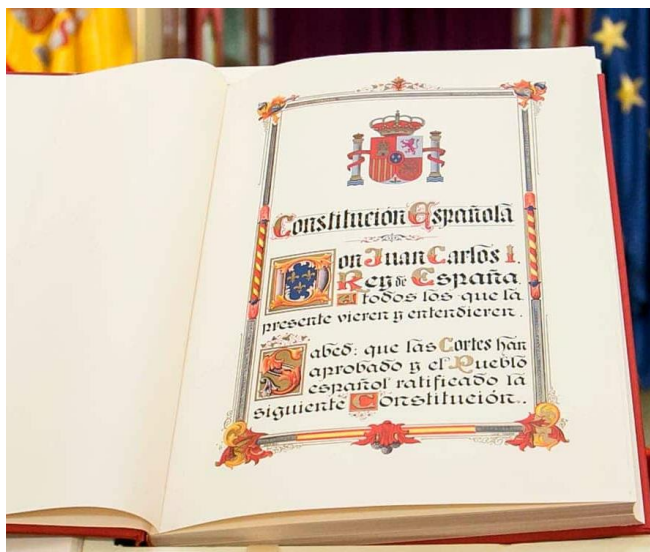 Constitución Española
Don Juan Carlos I,
Rey de España,
A todos los que la
presente vieren y entendieren.
Sabed: que las Cortes han
aprobado y el Pueblo
español ratificado la
siguiente Constitución..